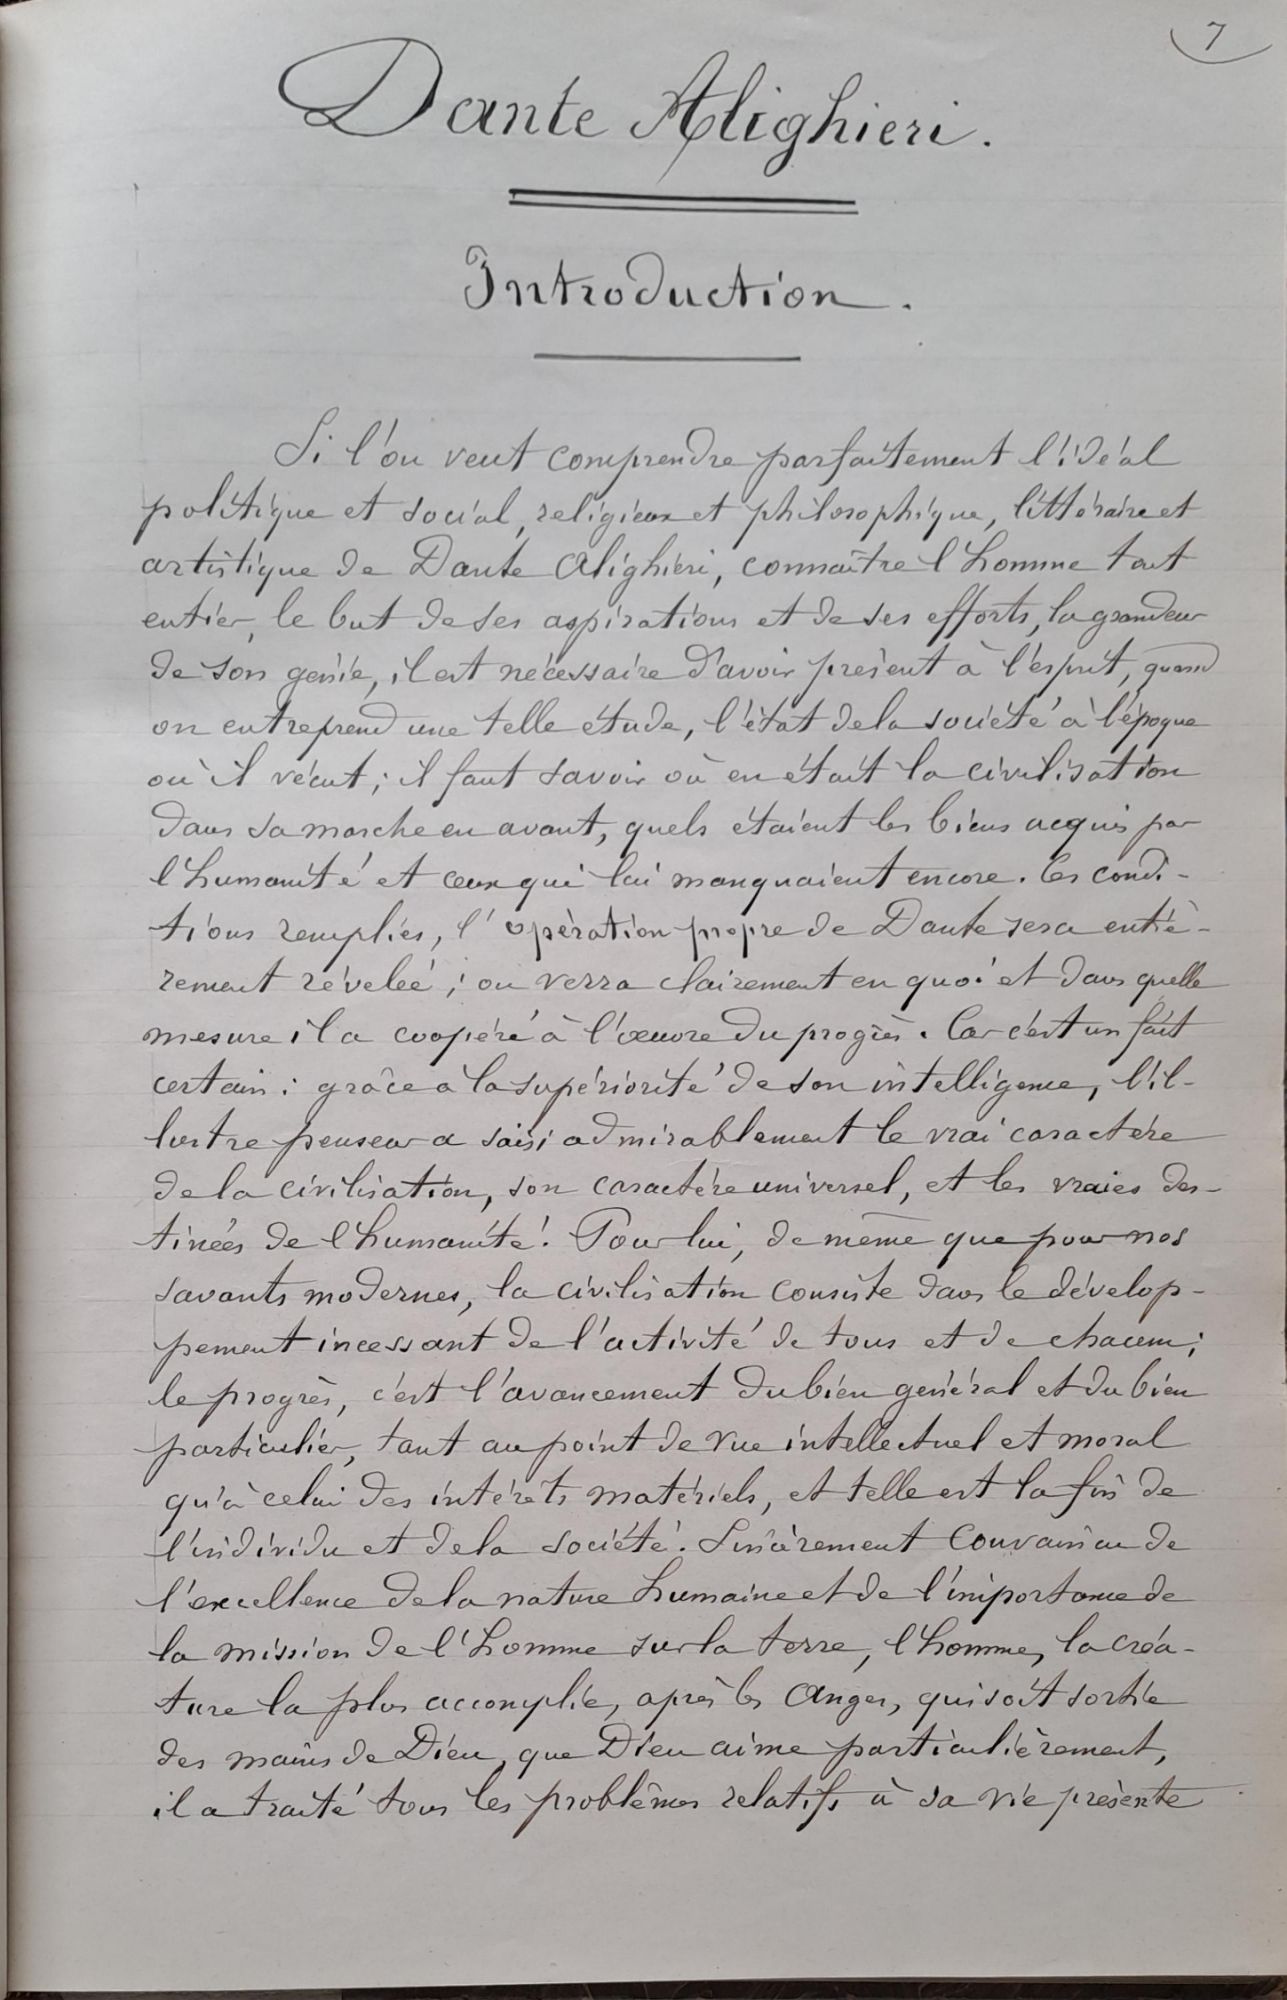 7
Dante Alighieri.
Introduction.
Si l'on veut comprendre parfaitement l'idéal
politique et social, religieux et philosophique, littéraire et
artistique de Dante Alighieri, connaître l'homme tout
entier, le but de ses aspirations et de ses efforts, la grandeur
de son génie, il est nécessaire d'avoir présent à l'esprit, quand
on entreprend une telle étude, l'état de la société à l'époque
où il vécut; il faut savoir où en était la civilisation
dans sa marche en avant, quels étaient les biens acquis par
l'humanité et ceux qui lui manquaient encore. Ces condi-
tions remplies, l'opération propre de Dante sera entiè-
rement révélée; on verra clairement en quoi et dans quelle
mesure il a coopéré à l'œuvre du progrès. Car c'est un fait
certain: grâce à la supériorité de son intelligence, l'il-
lustre penseur a saisi admirablement le vrai caractère
de la civilisation, son caractère universel, et les vraies des-
tinées de l'humanité! Pour lui, de même que pour nos
savants modernes, la civilisation consiste dans le dévelop-
pement incessant de l'activité de tous et de chacun;
le progrès, c'est l'avancement du bien général et du bien
particulier, tant au point de vue intellectuel et moral
qu'à celui des intérêts matériels, et telle est la fin de
l'individu et de la société. Sincèrement convaincu de
l'excellence de la nature humaine et de l'importance de
la mission de l'homme sur la terre, l'homme, la créa-
ture la plus accomplie, après les Anges, qui soit sortie
des mains de Dieu, que Dieu aime particulièrement,
il a traité tous les problèmes relatifs à sa vie présente